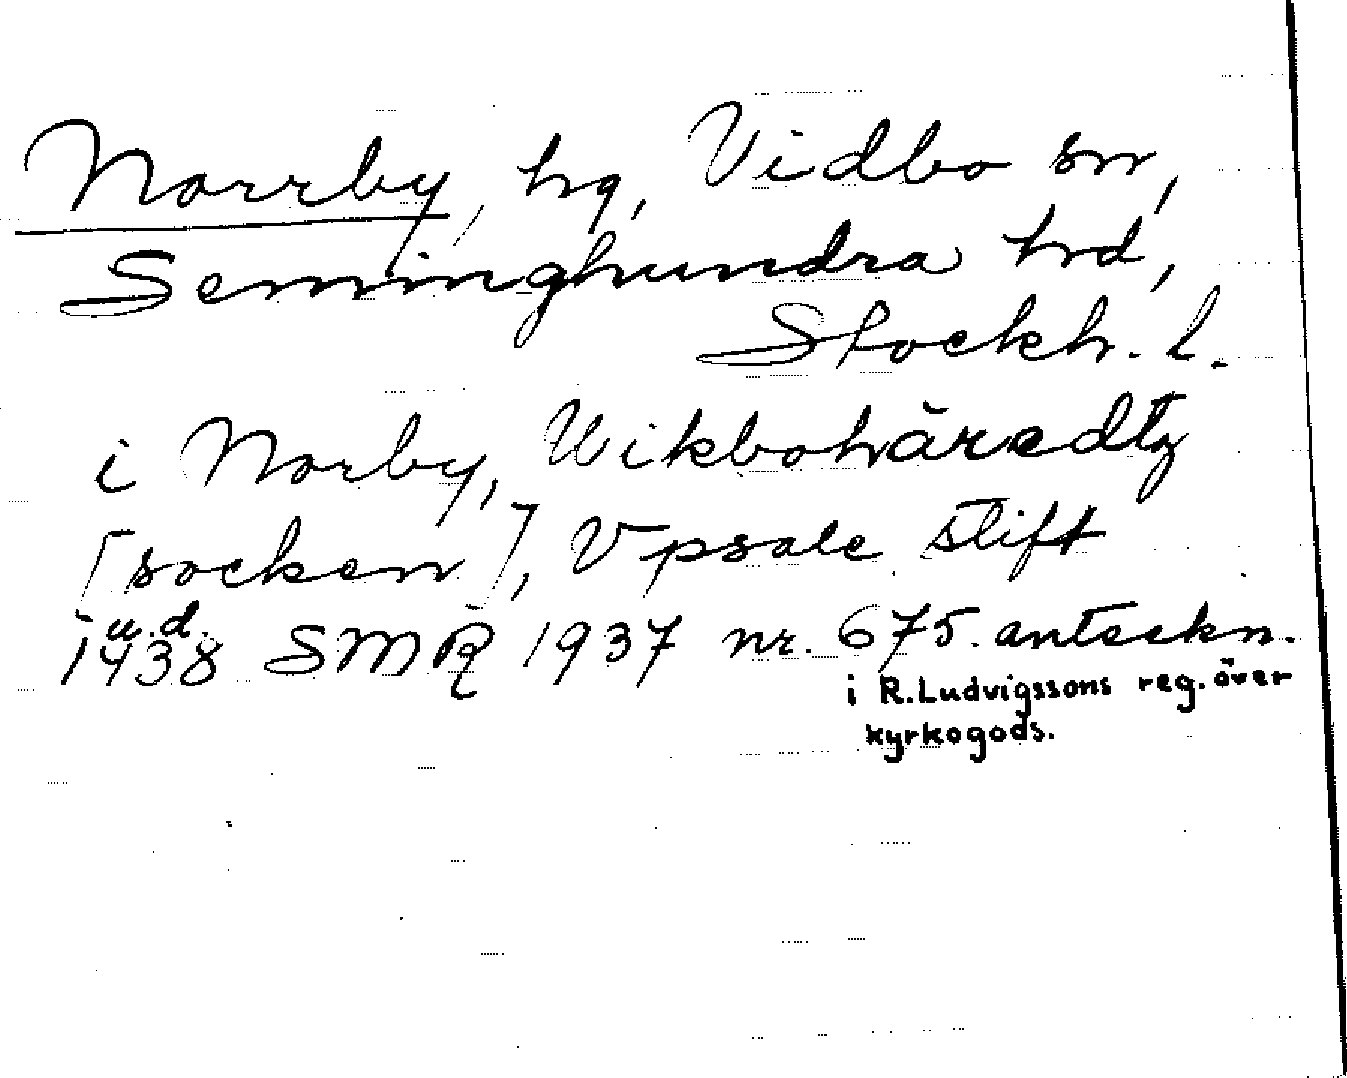 Norrby, hg, Vidbo sn,
Seminghundra hrd,
Stockh. l.
i Norby, Wikbohäredtz
[socken], Vpsale stift
u.d.
1438 SMR 1937 nr. 675. anteckn.
i R. Ludvigssons reg. över
kyrkogods.